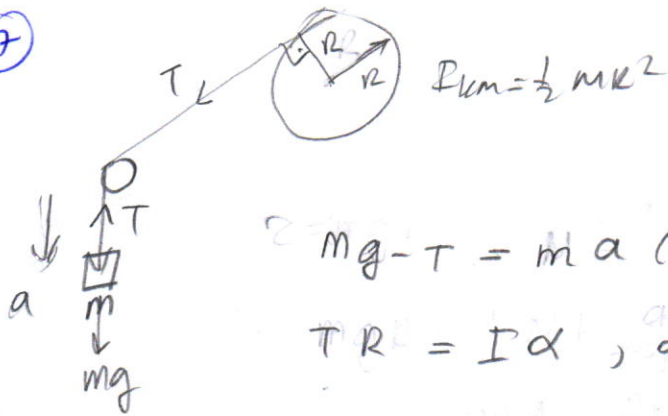 7
R
R
I_KM = ½ mR²
T
T
a
m
mg
mg - T = m a (
T R = I α ,